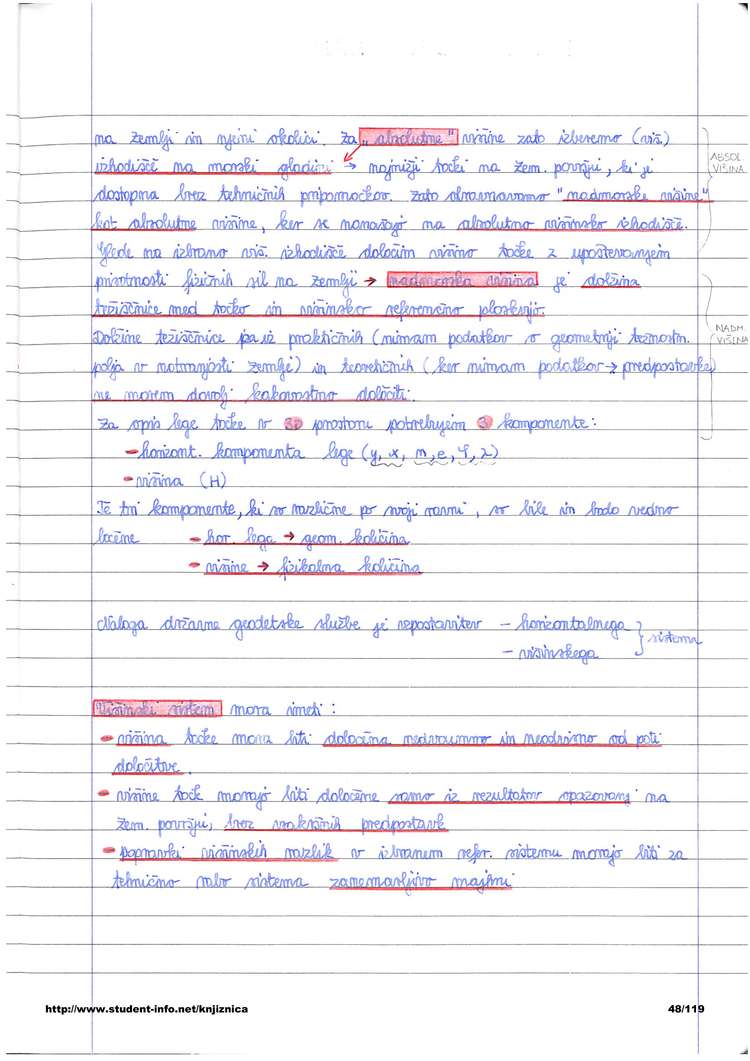 na Zemlji in njeni okolici. Za "absolutne" višine zato izberemo (viš.)
izhodišče na morski gladini → najnižji točki na Zem. površju, ki je
dostopna brez tehničnih pripomočkov. Zato obravnavamo "nadmorske višine"
kot absolutne višine, ker se nanašajo na absolutno višinsko izhodišče.
ABSOL.
VIŠINA
Glede na izbrano viš. izhodišče določim višino točke z upoštevanjem
prisotnosti fizičnih sil na Zemlji → nadmorska višina je dolžina
težiščnice med točko in višinsko referenčno ploskvijo.
Dolžine težiščnice pa iz praktičnih (nimam podatkov o geometriji težnostn.
polja v notranjosti Zemlje) in teoretičnih (ker nimam podatkov → predpostavke)
ne morem dovolj kakovostno določiti.
NADM.
VIŠINA
Za opis lege točke v 3D prostoru potrebujem 3 komponente:
- horizont. komponenta lege (y, x, n, e, φ, λ)
- višina (H)
Te tri komponente, ki so različne po svoji naravi, so bile in bodo vedno
ločene - hor. lega → geom. količina
- višine → fizikalna količina
Naloga državne geodetske službe je vzpostavitev - horizontalnega
- višinskega
sistema
Višinski sistem mora imeti:
- višina točke mora biti določena nedvoumno in neodvisno od poti
določitve.
- višine točk morajo biti določene samo iz rezultatov opazovanj na
Zem. površju, brez vsakršnih predpostavk
- popravki višinskih razlik v izbranem refer. sistemu morajo biti za
tehnično rabo sistema zanemarljivo majhni
http://www.student-info.net/knjiznica
48/119